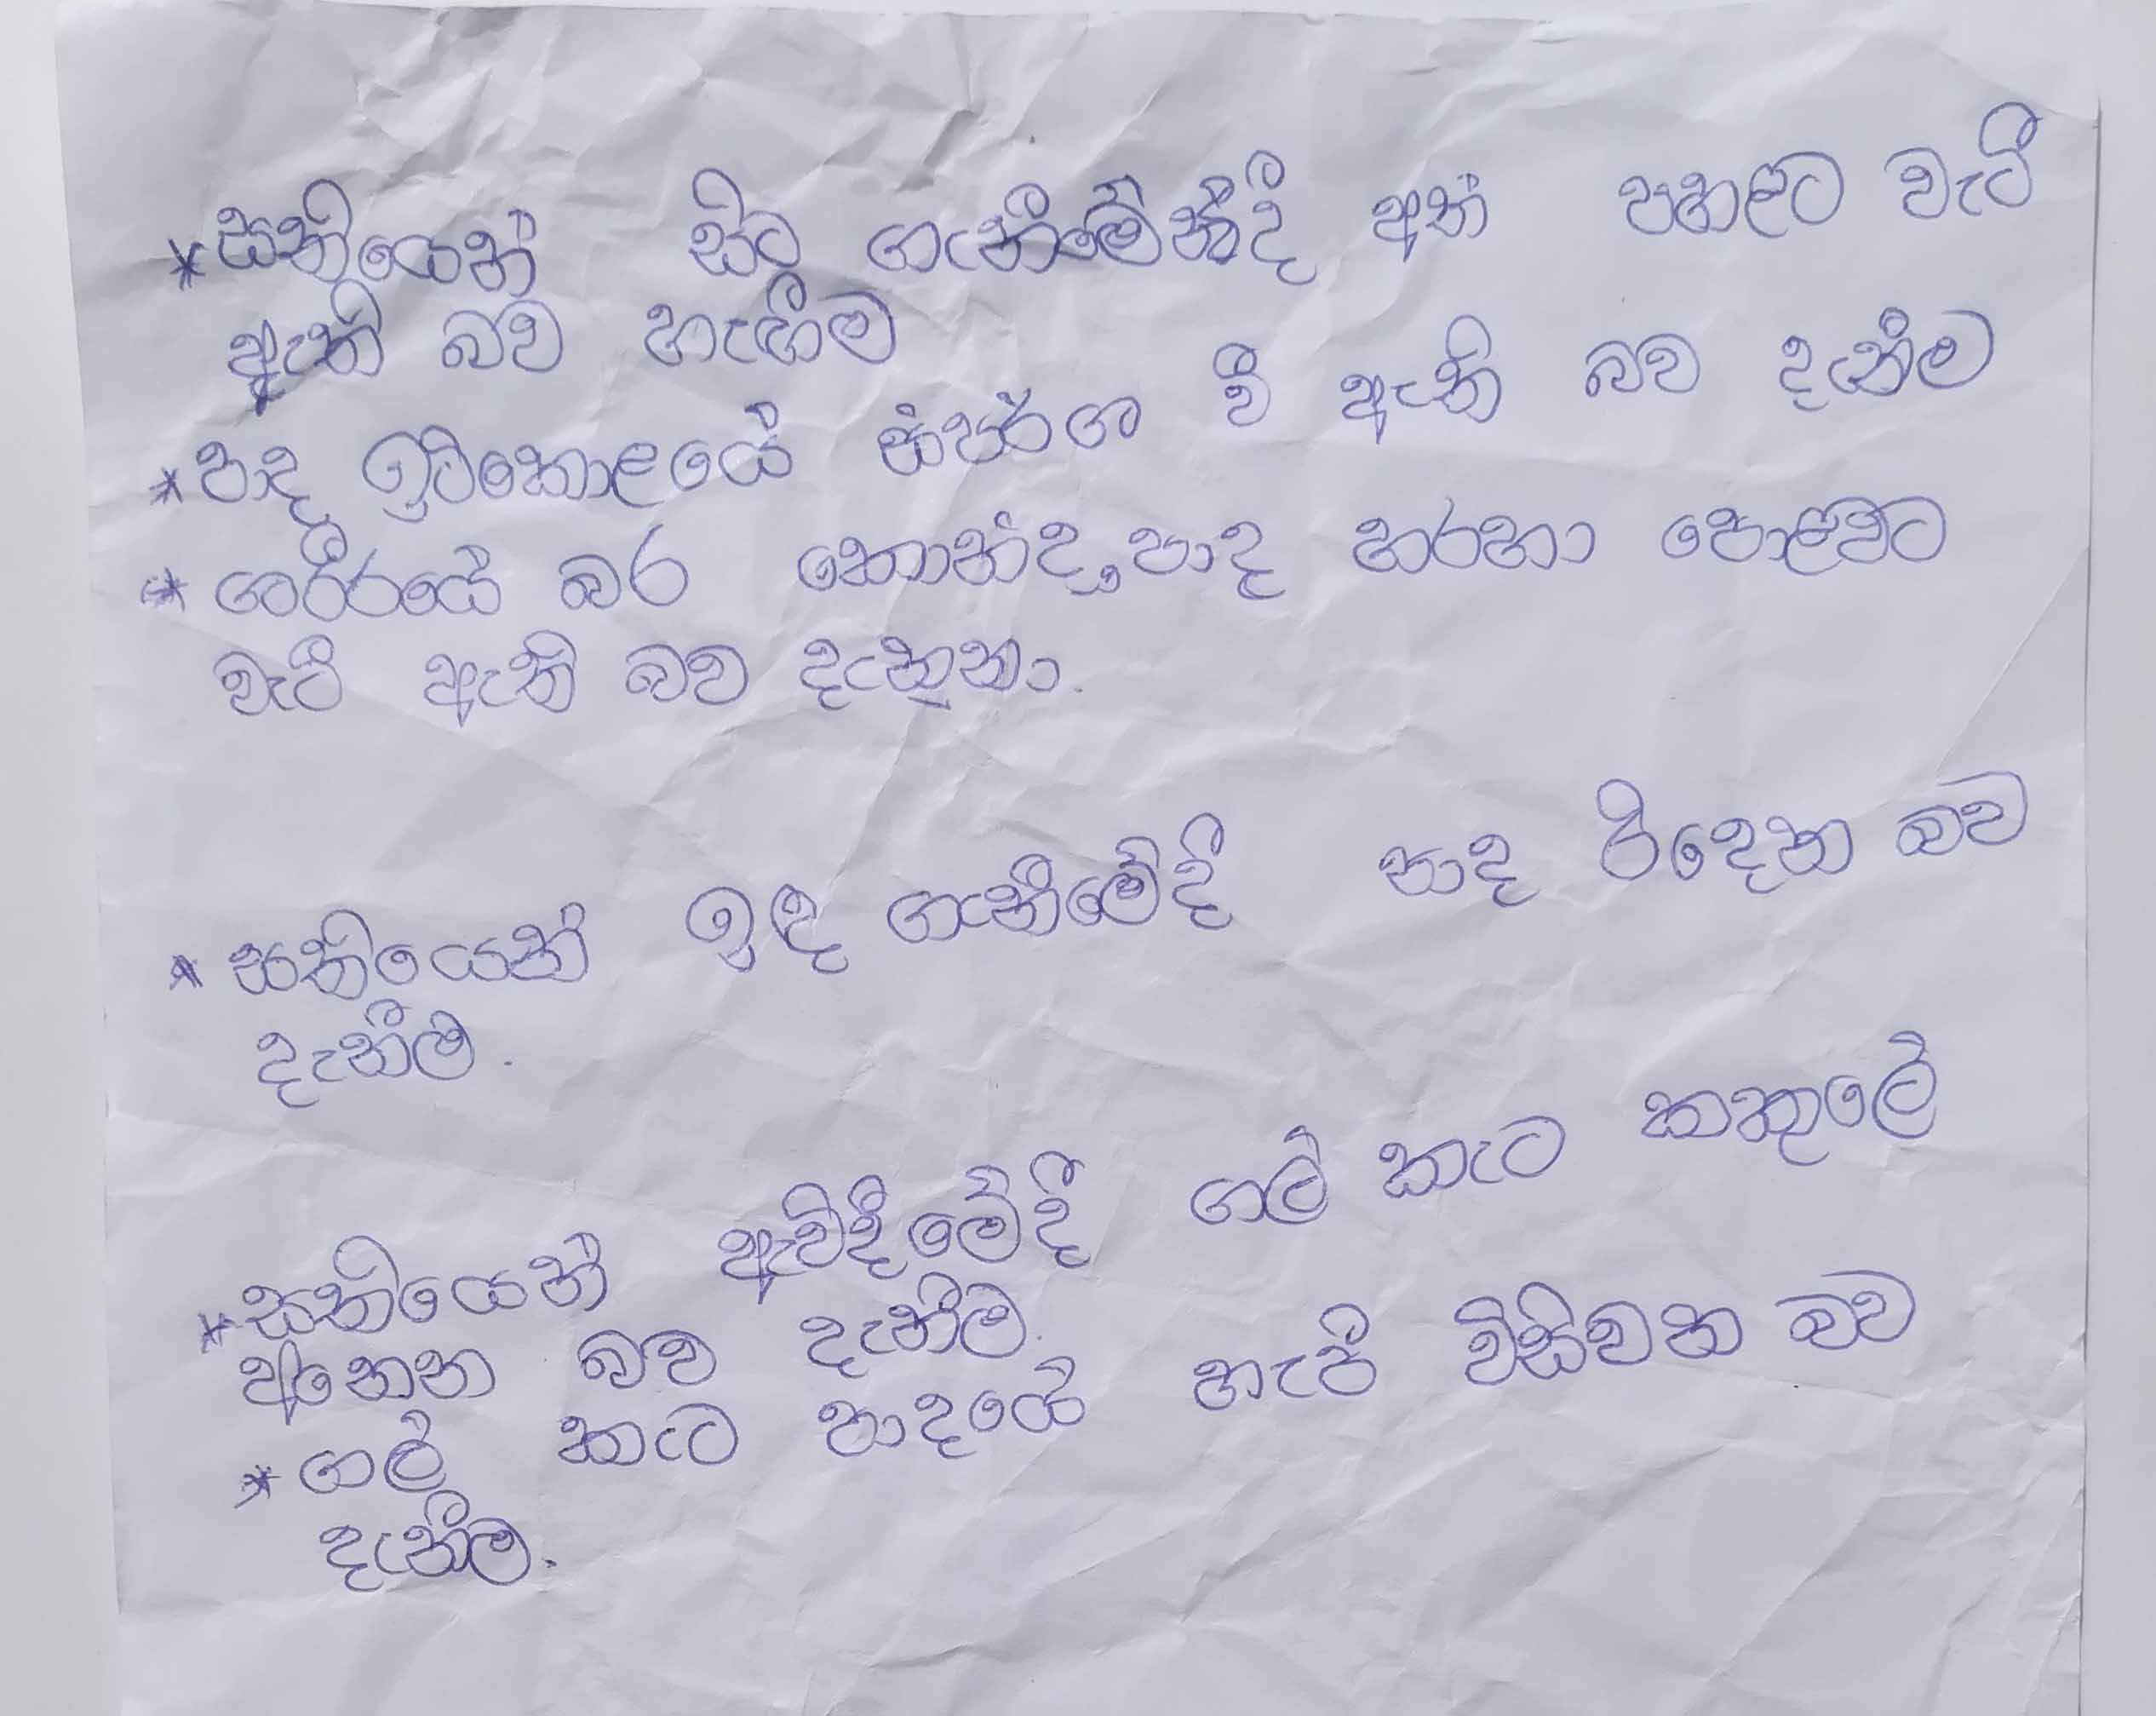 * සතියෙන් සිට ගැනීමේදී අත් පහළට වැටී
ඇති බව හැඟීම
* පාද ඉටිකොළයේ ස්පර්ශ වී ඇති බව දැනීම
* ශරීරයේ බර කොන්ද, පාද හරහා පොළවට
වැටී ඇති බව දැනුනා.
* සතියෙන් ඉඳ ගැනීමේදී පාද රිදෙන බව
දැනීම.
* සතියෙන් ඇවිදීමේදී ගල් කැට කකුලේ
අනෙන බව දැනීම.
* ගල් කැට පාදයේ හැපී විසිවන බව
දැනීම.